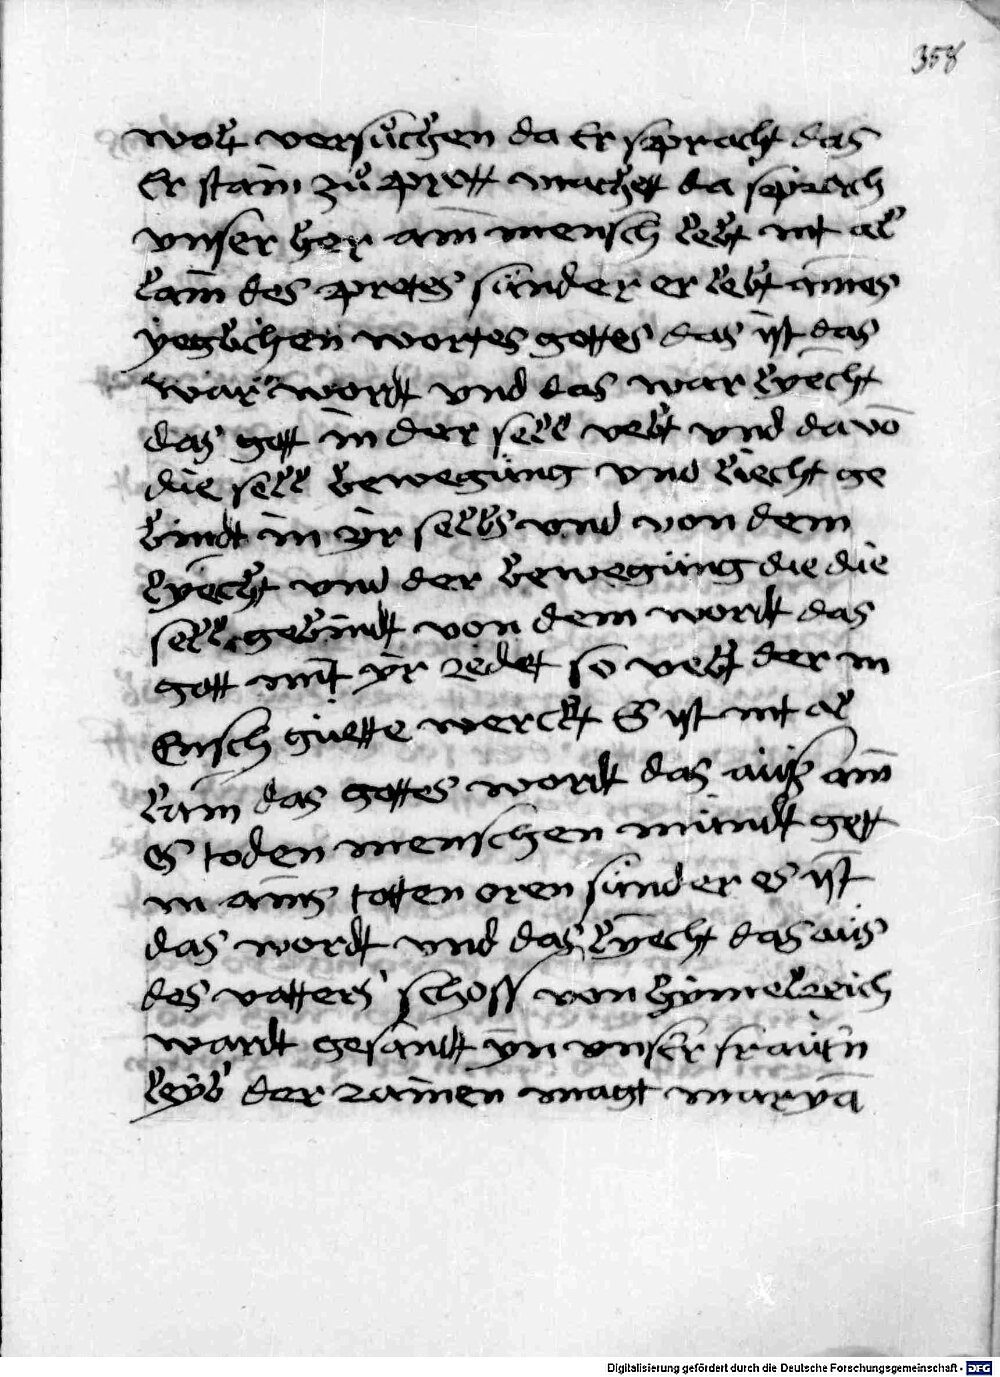 358
wolt versuchen da Er sprach das
Er stain zu prott machet da sprach
vnser her ain mensch lebt nit al
lain des protes sunder er lebt aines
yeglichen wortes gottes das ist das
war wordt vnd das war lyecht
das gott in der sell vebt vnd davō
die sell bewegung vnd liecht ge
bindt in yr selbs vnd von dem
lyecht vnd der bewegung die die
sell gebindt von dem wordt das
gott mit yr redet so vebt der m
Ensch guette werckt S ist nit al
lain das gottes wordt das auß ain
S toden menschen mundt gett
in ains totten oren sunder es ist
das wordt vnd das lyecht das auß
des vatters schoss von hymelreich
wardt gesandt yn vnser frauen
leyb der rainen magt marya
Digitalisierung gefördert durch die Deutsche Forschungsgemeinschaft - DFG